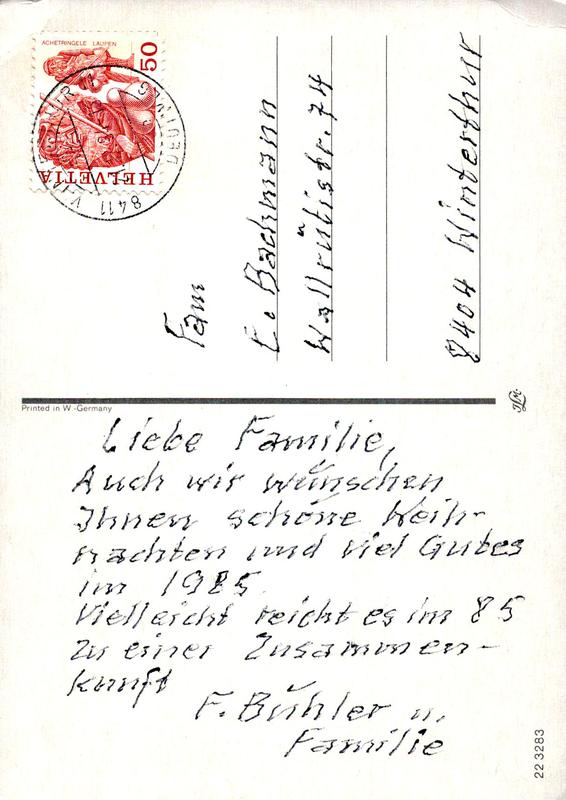 ACHETRINGELE LAUPEN
50
HELVETIA
8411
Fam
E. Bachmann
Wallrütistr. 74
8404 Winterthur
Printed in W.-Germany
Liebe Familie,
Auch wir wünschen
Ihnen schöne Weih-
nachten und viel Gutes
im 1985.
Vielleicht reicht es im 85
zu einer Zusammen-
kunft
F. Bühler u.
Familie
22 3283